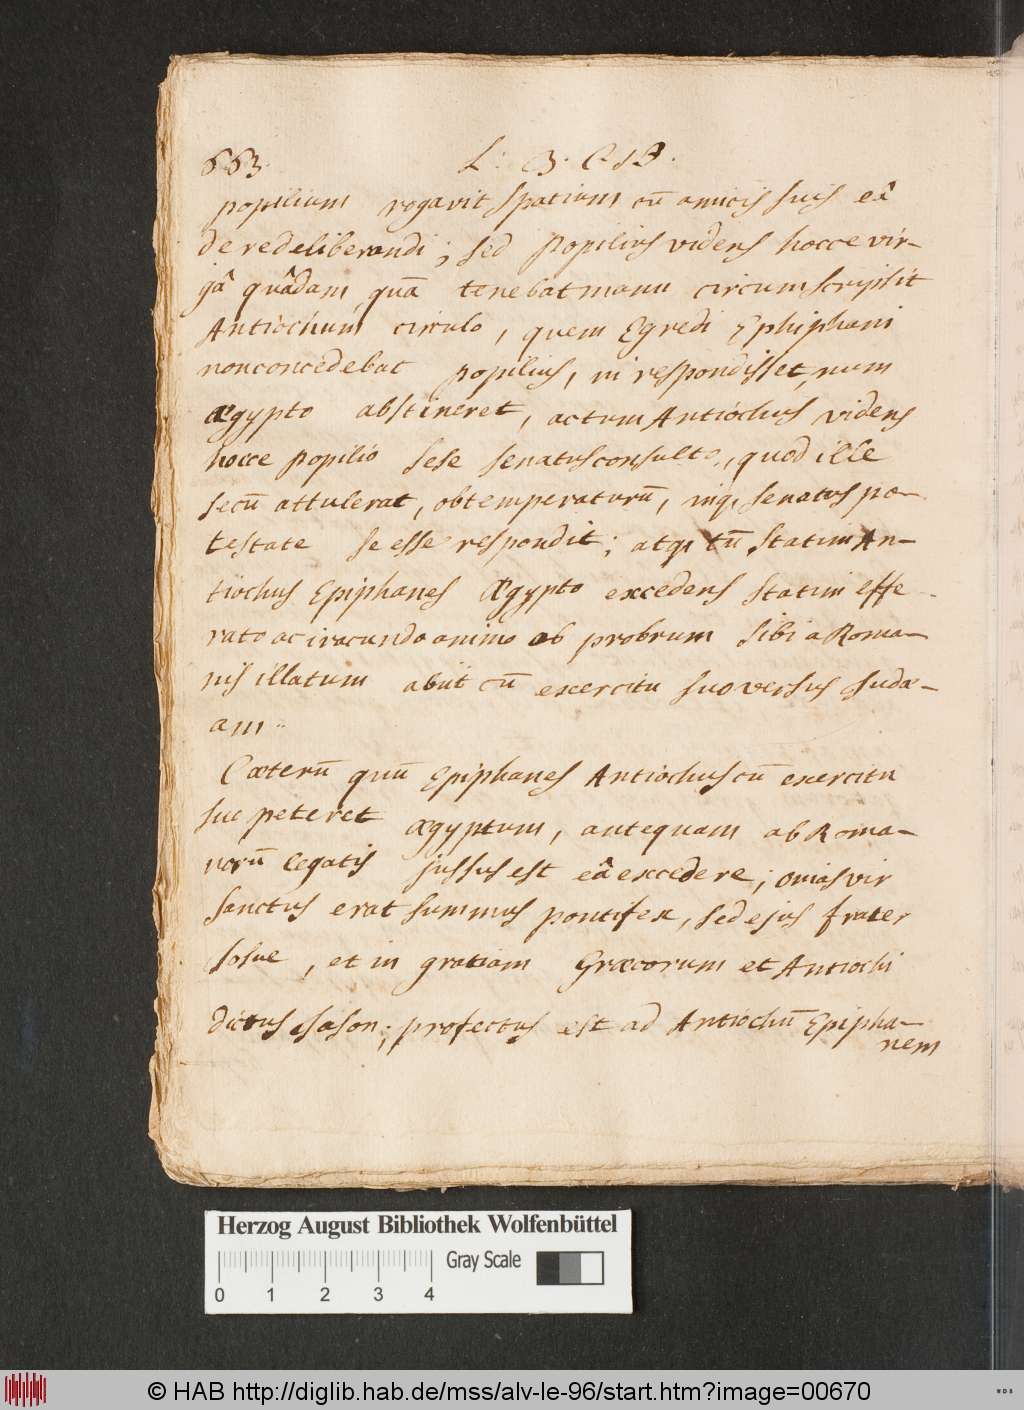 663. L. 3. C. 19.
popilium rogavit spatium cū amicis suis eâ
de re deliberandi; sed popilius videns hocce vir-
gâ quâdam quā tenebat manu circumscripsit
Antiochum circulo, quem Egredi Ephiphani
non concedebat popilius, ni respondisset, num
ægypto abstineret, actum Antiochus videns
hocce popilio sese senatus consulto, quod ille
secū attulerat, obtemperaturū, inq, senatus po-
testate se esse respondit; atq, tū statim An-
tiochus Epiphanes Ægypto excedens statim effe-
rato ac iracundo animo ob probrum sibi a Roma-
nis illatum abiit cū exercitu suo versus Judæ-
am..
Cæterū quū Epiphanes Antiochus cū exercitu
suo peteret ægyptum, antequam ab Roma-
norū legatis jussus est eâ excedere; onias vir
sanctus erat summus pontifex, sed ejus frater
Josue, et in gratiam Græcorum et Antiochi
dictus Jason; profectus est ad Antiochū Epipha-
nem
Herzog August Bibliothek Wolfenbüttel
Gray Scale
0 1 2 3 4
© HAB http://diglib.hab.de/mss/alv-le-96/start.htm?image=00670